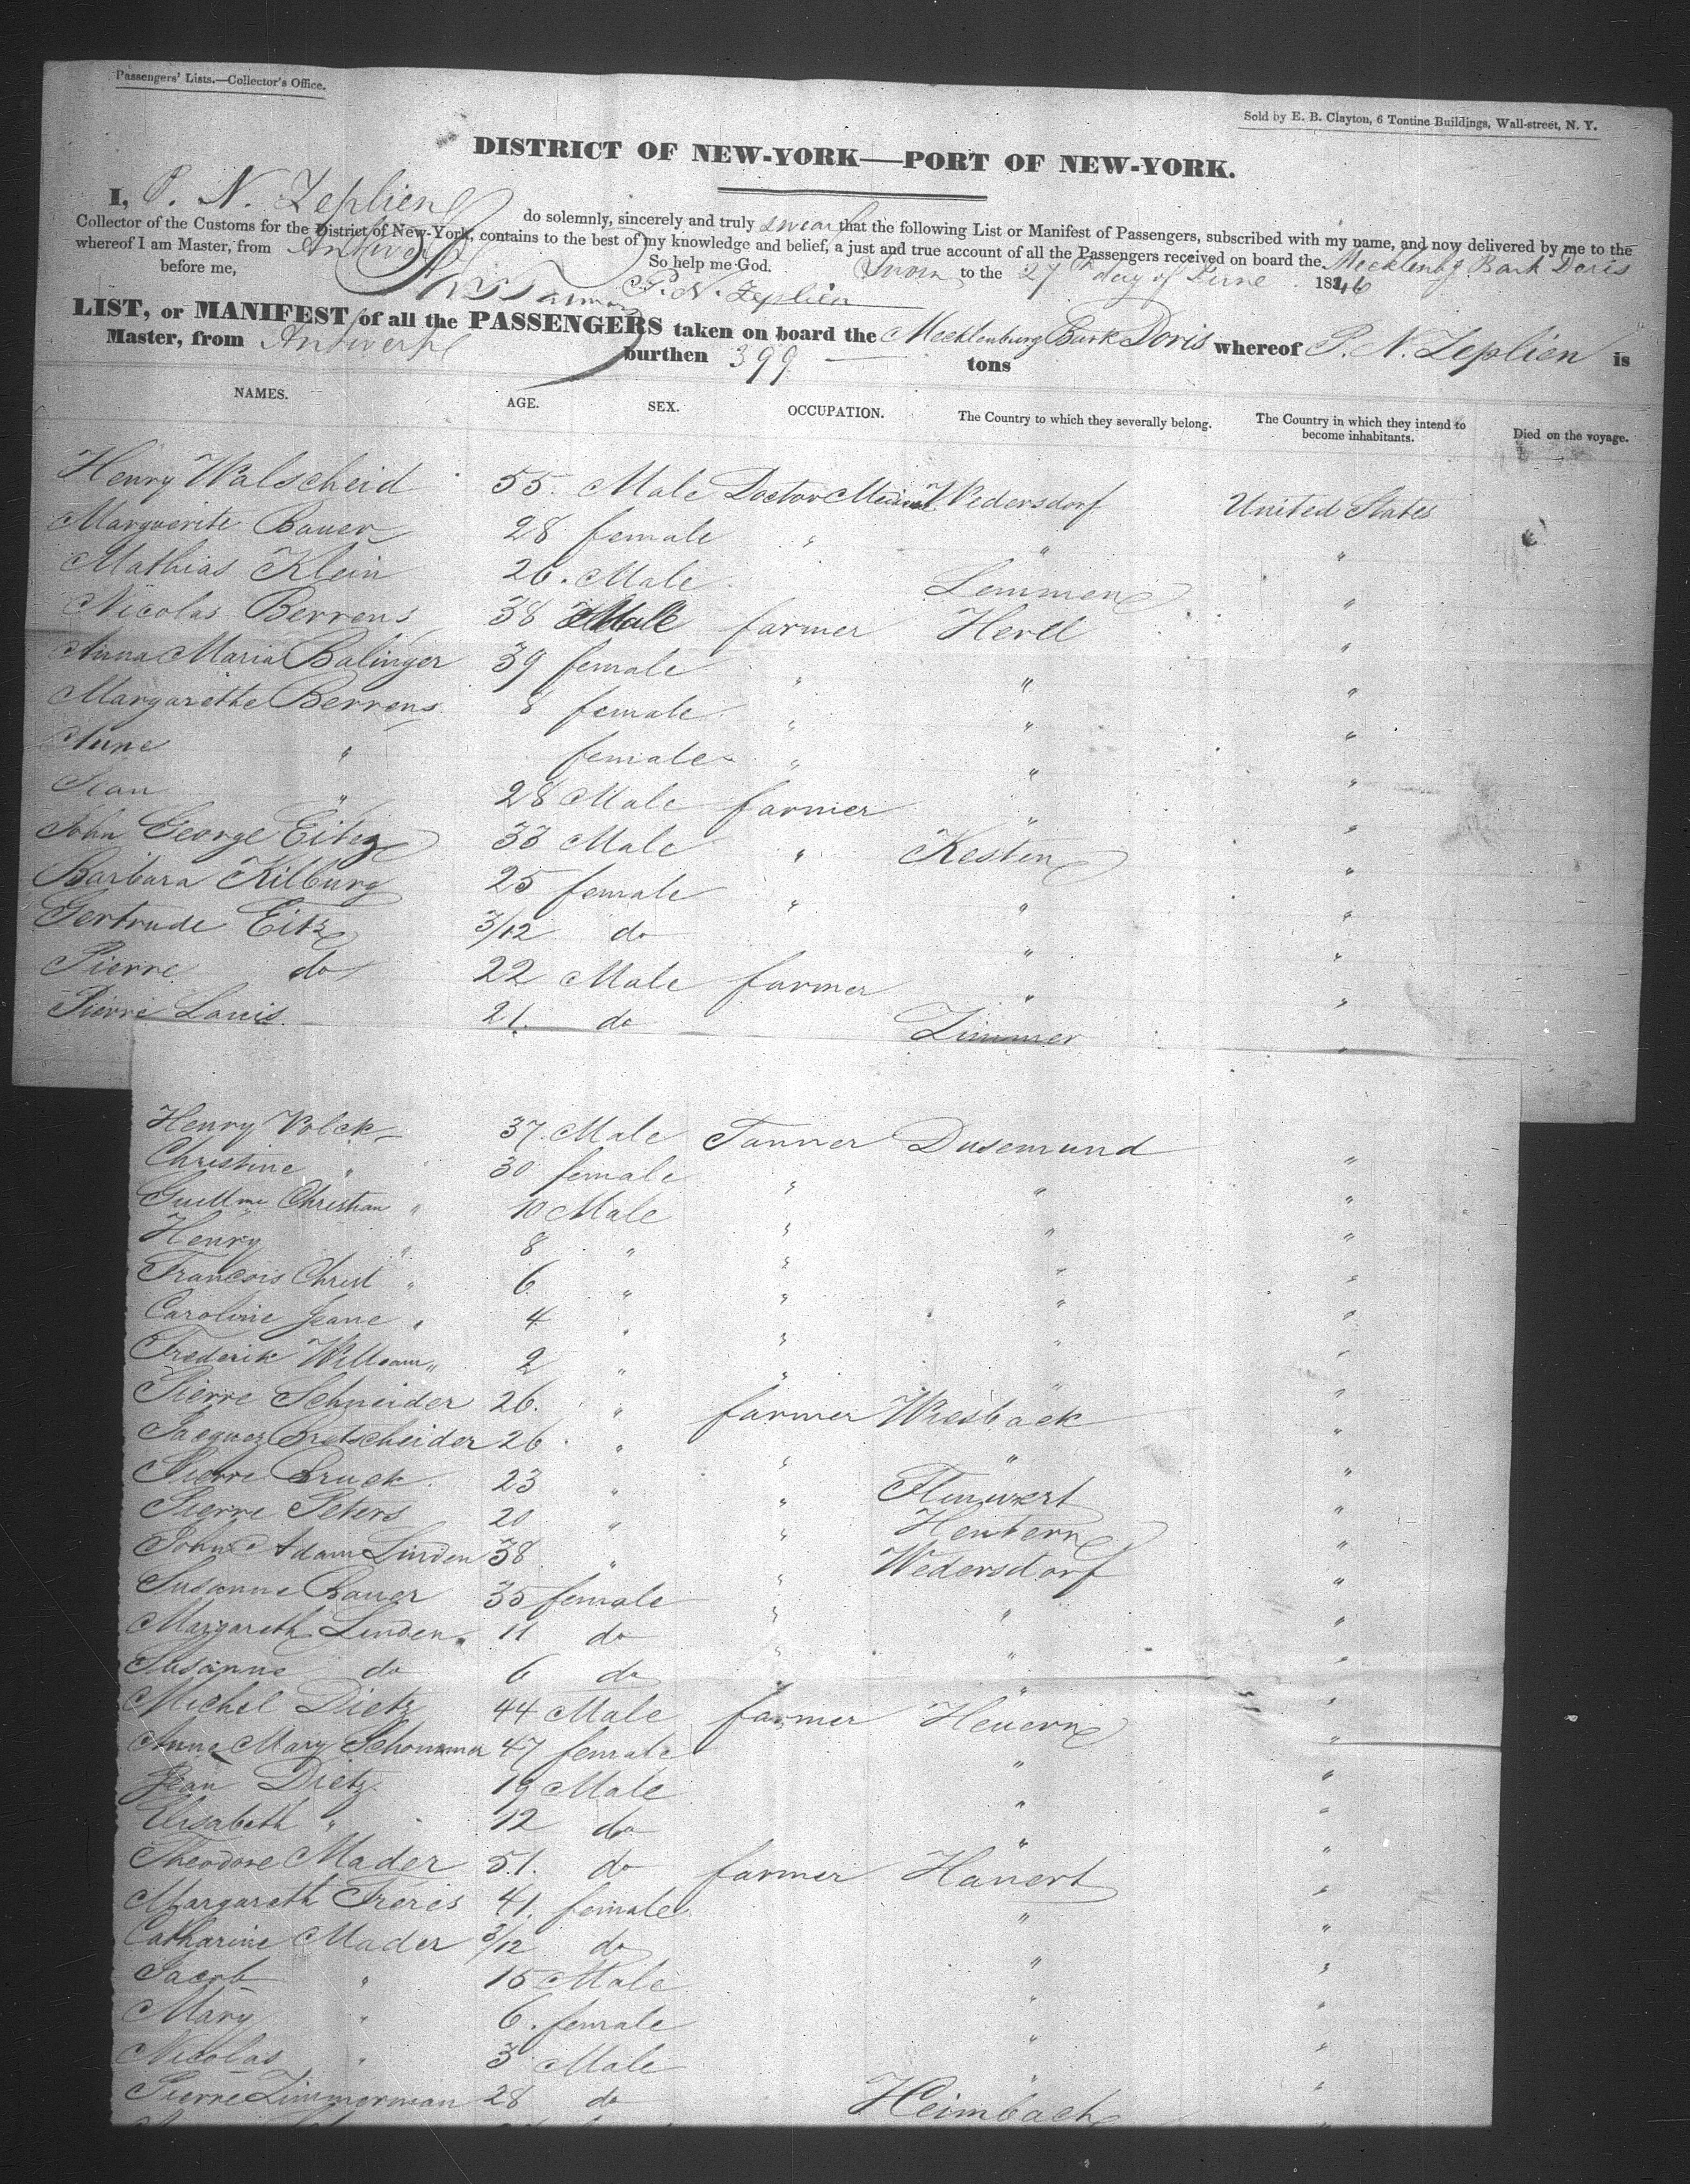 Passengers' Lists.—Collector's Office.
Sold by E. B. Clayton, 6 Tontine Buildings, Wall-street, N. Y.
DISTRICT OF NEW-YORK—PORT OF NEW-YORK.
I, P. N. Zeplien do solemnly, sincerely and truly swear that the following List or Manifest of Passengers, subscribed with my name, and now delivered by me to the
Collector of the Customs for the District of New-York, contains to the best of my knowledge and belief, a just and true account of all the Passengers received on board the Mecklenbg. Bark Doris
whereof I am Master, from Antwerp So help me God. Sworn to the 27th day of June 1846
before me, P. N. Zeplien
LIST, or MANIFEST of all the PASSENGERS taken on board the Mecklenburg Bark Doris whereof P. N. Zeplien is
Master, from Antwerp burthen 399 tons
NAMES. AGE. SEX. OCCUPATION. The Country to which they severally belong. The Country in which they intend to become inhabitants. Died on the voyage.
Henry Walscheid 55. Male Doctor Wedersdorf United States
Marguerite Bauer 28 female " " "
Mathias Klein 26. Male Lemmen "
Nicolas Berrens 38 Male farmer Herll "
Anna Maria Balinger 39 female " " "
Margarethe Berrens 8 female " " "
Anne " female " " "
Jean " 28 Male farmer " "
John George Eitz 33 Male " Kesten "
Barbara Kilburg 25 female " " "
Gertrude Eitz 3/12 do " "
Pierre do 22 Male farmer " "
Pierre Louis 21. do Zimmer "
Henry Volck 37. Male Tanner Dusemund "
Christine " 30 female " " "
Guillme Christian " 10 Male " " "
Henry " 8 " " " "
Francois Christ " 6 " " " "
Caroline Jeane " 4 " " " "
Frederik William " 2 " " " "
Pierre Schneider 26. " farmer Wiesback "
Jacques Bretscheider 26 " " " "
Pierre Bruck. 23 " " "
Pierre Peters 20 " " Hentern "
John Adam Linden 38 " " Wedersdorf "
Susanne Bauer 35 female " " "
Margareth Linden 11 do " " "
Susanne do 6 do " " "
Michel Dietz 44 Male farmer Heuern "
Anne Mary Schommer 47 female " "
Jean Dietz 19 Male " "
Elisabeth " 12 do " "
Theodore Mader 51. do farmer Hanert "
Margareth Freres 41. female " "
Catharine Mader 3/12 do " "
Jacob " 15 Male " "
Mary " 6. female " "
Nicolas " 3 Male " "
Pierre Zimmerman 28 do Heimbach